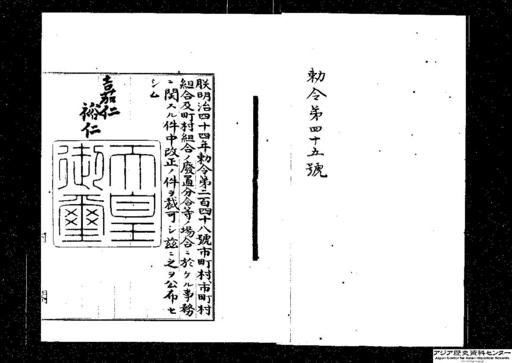 勅令第四十五號
朕明治四十四年勅令第二百四十八號市町村、市町村
組合及町村組合ノ廢置分合等ノ場合ニ於ケル事務
ニ關スル件中改正ノ件ヲ裁可シ茲ニ之ヲ公布セ
シム
嘉仁
裕仁
天皇
御璽
内閣
アジア歴史資料センター
Japan Center for Asian Historical Records